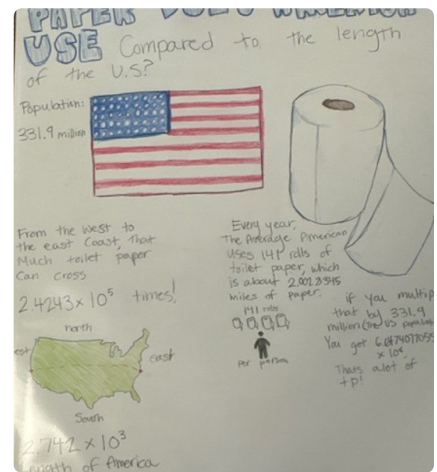 PAPER DOES AMERICA
USE Compared to the length
of the U.S?
Population:
331.9 million
From the West to
the east Coast, That
Much toilet paper
Can cross
2.4243 × 10⁵ times!
north
east
South
2.742 × 10³
Length of America
Every year,
The Average American
uses 141 rolls of
toilet paper, which
is about
miles of paper.
141 rolls
per person
if you multip
that by 331.9
million (the US
You get
Thats a lot of
t p!